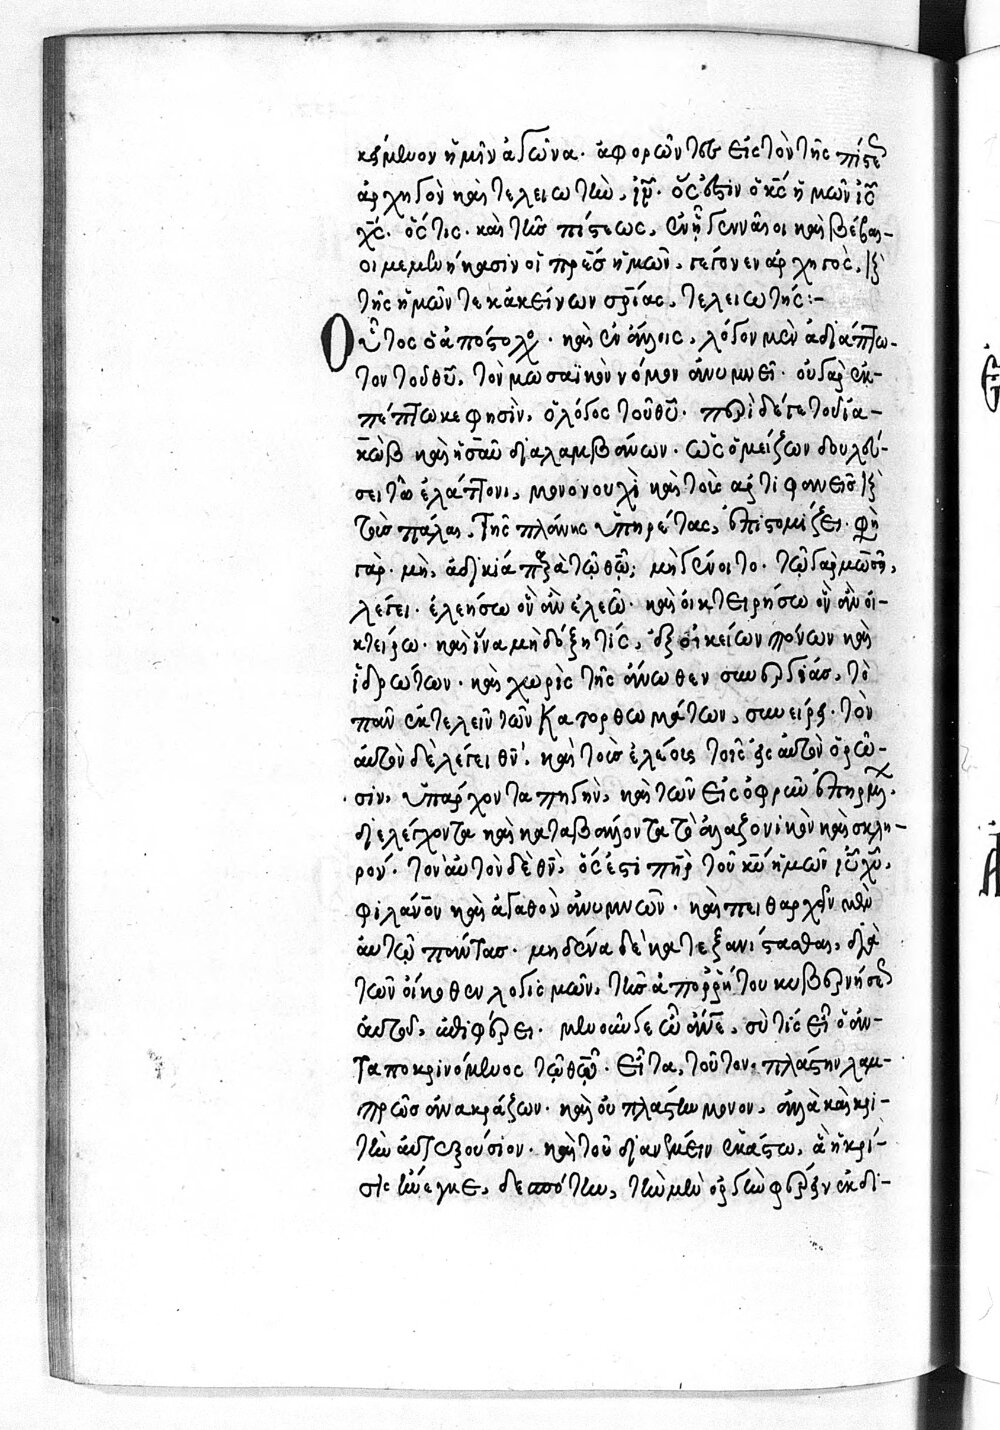 κείμενον ἡμῖν ἀγῶνα· ἀφορῶντες εἰς τὸν τῆς πίστεως
ἀρχηγὸν καὶ τελειωτὴν, ἰν̄· ὅς ἐστιν ὁ κς̄ ἡμῶν ις̄
χς̄. ὅστις· καὶ τῆς πίστεως, ἐν ᾗ γενναῖοι καὶ βέβαι-
οι μεμενήκασιν οἱ πρες̄ ἡμῶν, γέγονεν ἀρχηγὸς, καὶ
τῆς ἡμῶν τε κἀκείνων σρίας, τελειωτής:-
Οὗτος ὁ ἀπόστολος· καὶ ἐν ἄλλοις, λόγον μὲν ἀδιάπτω-
τον τοῦ θῡ, τὸν μωσαϊκὸν νόμον ἀνυμνεῖ· οὐ γὰρ ἐκ-
πέπτωκε φησὶν, ὁ λόγος τοῦ θῡ· περὶ δέ γε τοῦ ἰα-
κὼβ καὶ ἠσαῦ διαλαμβάνων· ὡς ὁ μείζων δουλεύ-
σει τῶ ἐλάττονι, μονονουχὶ καὶ τοῖς ἀρτιφανεῖς καὶ
τοῖς πάλαι, τῆς πλάνης ὑπηρέτας, ἐπιστομίζει· φη
γάρ· μὴ, ἀδικία παρὰ τῷ θῷ; μὴ γένοιτο· τῷ γὰρ μωσῆ,
λέγει· ἐλεήσω ὃν ἂν ἐλεῶ· καὶ οἰκτειρήσω ὃν ἂν οἰ-
κτείρω· καὶ ἵνα μὴ δόξη τίς, ἐξ οἰκείων πόνων καὶ
ἱδρώτων· καὶ χωρὶς τῆς ἄνωθεν συνεργίας, τὸ
πᾶν ἐκτελεῖν τῶν κατορθωμάτων, συνείρει· τὸν
αὐτὸν δὲ λέγει θν̄· καὶ τοῖς ἐλέοις τοῖς εἰς αὐτὸν ὁρῶ-
σιν, ὑπάρχοντα πηγὴν, καὶ τῶν εἰς ὀφρὺν ἐπηρμένων
διελέγχοντα καὶ καταβάλλοντα τὸ ἀλαζονικὸν καὶ σκλη-
ρόν· τὸν αὐτὸν δὲ θν̄, ὅς ἐστι πηρ τοῦ κῡ ἡμῶν ιῡ χῡ,
φιλάνον καὶ ἀγαθὸν ἀνυμνῶν· καὶ πειθαρχεῖν μὲν
αὐτῷ πάντας· μηδένα δὲ κατεξανίστασθαι, διὰ
τῶν οἴκοθεν λογισμῶν, τῆς ἀπορρήτου κυβερνήσεως
αὐτοῦ, ἐπιφέρει· μενοῦνγε ὦ ἄνε, σὺ τίς εἶ ὁ ἀν-
ταποκρινόμενος τῷ θῷ· εἶτα, τοῦτον, πλάστην λαμ-
πρῶς ἀνακράζων· καὶ οὐ πλάστην μόνον, ἀλλὰ καὶ κρι-
τὴν αὐτεξούσιον· καὶ τοῦ διανέμειν ἑκάστω, ἃ ἡ κρί-
σις ἤνεγκε, δεσπότην, τὴν μὲν ὀργὴν φέρειν ἐκδι-